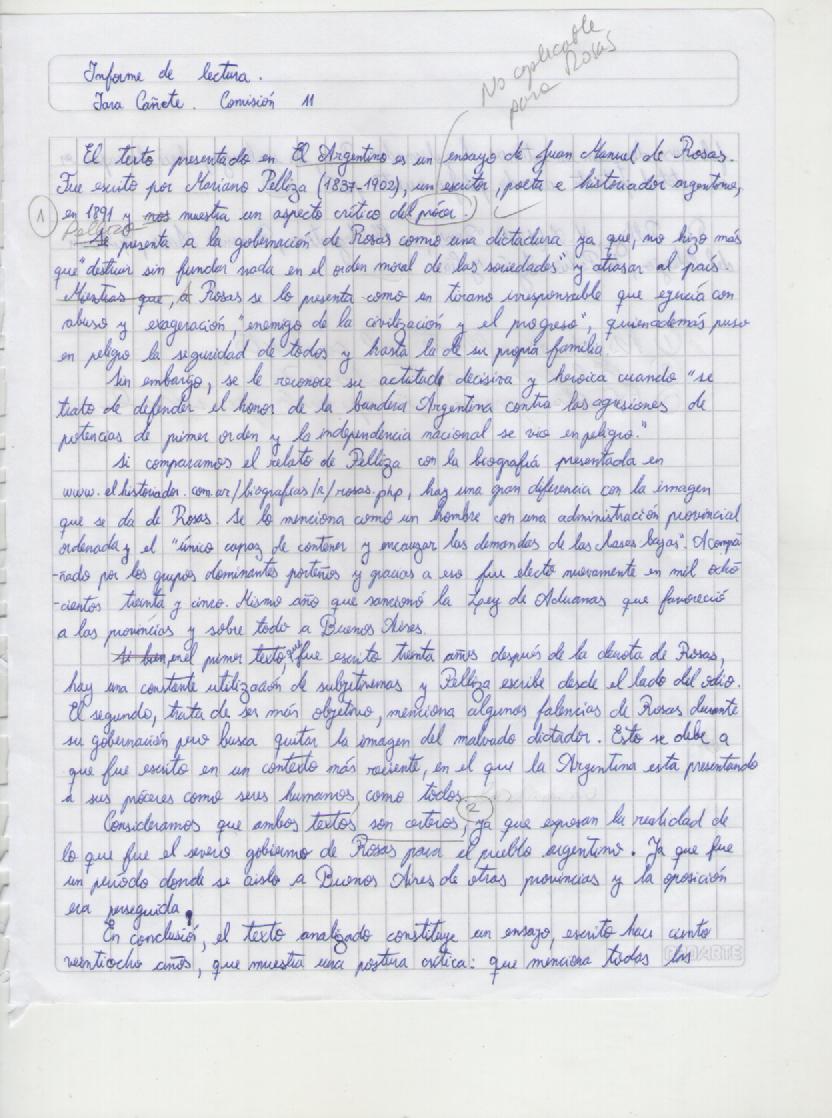 No aplicable
para Rosas
Informe de lectura.
Tara Cañete. Comisión 11
El texto presentado en El Argentino es un ensayo de Juan Manuel de Rosas.
Fue escrito por Mariano Pelliza (1837-1902), un escritor, poeta e historiador argentino,
1 en 1891 y nos muestra un aspecto crítico del prócer.
Pelliza
Se presenta a la gobernación de Rosas como una dictadura ya que, no hizo más
que "destruir sin fundar nada en el orden moral de las sociedades" y atrasar al país
Mientras que, A Rosas se lo presenta como en tirano irresponsable que ejercía con
abuso y exageración, "enemigo de la civilización y el progreso", quien además puso
en peligro la seguridad de todos y hasta la de su propia familia
Sin embargo, se le reconoce su actitud decisiva y heroica cuando "se
trato de defender el honor de la bandera Argentina contra las agresiones de
potencias de primer orden y la independencia nacional se vio en peligro."
Si comparamos el relato de Pelliza con la biografía presentada en
www.elhistoriador.com.ar/biografias/r/rosas.php, hay una gran diferencia con la imagen
que se da de Rosas. Se lo menciona como un hombre con una administración provincial
ordenada y el "único capaz de contener y encauzar las demandas de las clases bajas". Acompa
-ñado por los grupos dominantes porteños y gracias a eso fue electo nuevamente en mil ocho
-cientos treinta y cinco. Mismo año que sancionó la Ley de Aduanas que favoreció
a las provincias y sobre todo a Buenos Aires.
Si bien, en el primer texto, que fue escrito treinta años después de la derrota de Rosas,
hay una constante utilización de subjetivemas y Pelliza escribe desde el lado del odio.
El segundo, trata de ser más objetivo, menciona algunas falencias de Rosas durante
su gobernación pero busca quitar la imagen del malvado dictador. Esto se debe a
que fue escrito en un contexto más reciente, en el que la Argentina esta presentando
a sus próceres como seres humanos, como todos.
2
Consideramos que ambos textos son certeros, ya que expresan la realidad de
lo que fue el severo gobierno de Rosas para el pueblo argentino. Ya que fue
un período donde se aislo a Buenos Aires de otras provincias y la oposición
era perseguida.
En conclusión, el texto analizado constituye un ensayo, escrito hace ciento
veintiocho años, que muestra una postura crítica: que menciona todas las